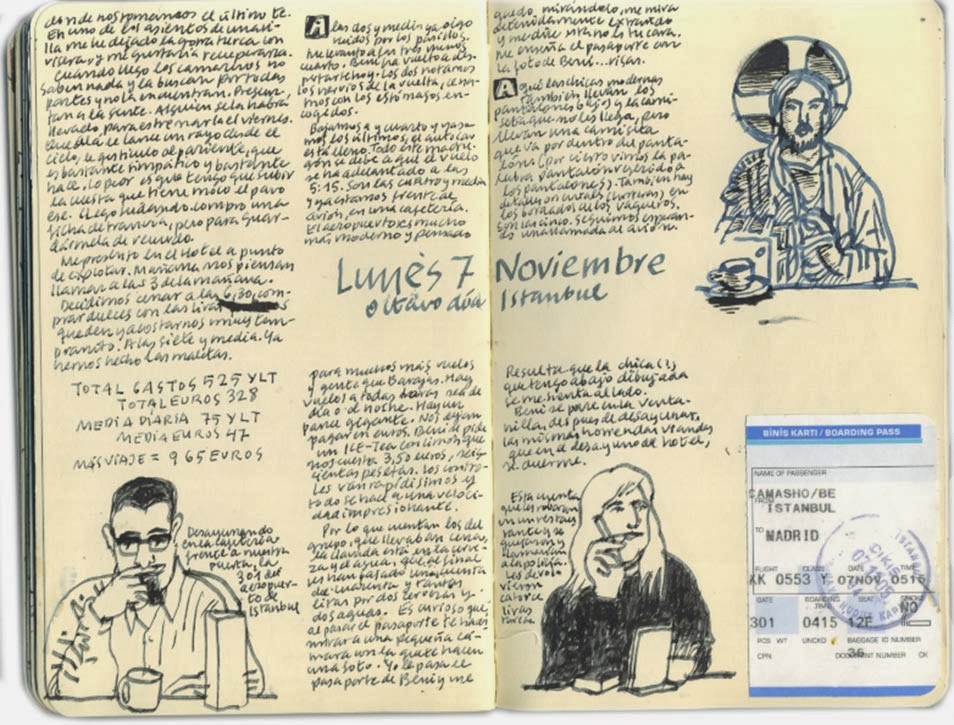 donde nos tomamos el último te.
En uno de los asientos de una si-
lla me he dejado la gorra turca con
visera, y me gustaría recuperarla.
Cuando llego los camareros no
saben nada y la buscan por todas
partes y no la encuentran. Pregun-
tan a la gente. Alguien se la habrá
llevado, para estrenarla el viernes.
cielo, le gesticulo al pariente, que
es bastante simpático y bastante
hace. Lo peor es que tengo que subir
la cuesta que tiene moco el pavo
ese. Llego sudando. Compro una
ficha de tranvía, pero para guar-
darmela de recuerdo.
Me presento en el hotel a punto
de explotar. Mañana nos piensan
llamar a las 3 de la mañana.
Decidimos cenar a las 6,30, com-
prar dulces con las liras
queden y acostarnos muy tem-
pranito. A las siete y media. Ya
hemos hecho las maletas.
TOTAL GASTOS 525 YLT
TOTAL EUROS 328
MEDIA DIARIA 75 YLT
MEDIA EUROS 47
MÁS VIAJE = 965 EUROS
Desayunando
en la cafetería
frente a nuestra
puerta, la
301 del
aeropuer-
to de
Istanbul
A las dos y media, oigo
ruidos por los pasillos.
Me levanto a las tres menos
cuarto. Beni ha vuelto a des-
pertarse hoy. Los dos notamos
los nervios de la vuelta, cena-
mos con los estómagos en-
cogidos.
Bajamos a y cuarto y ya so-
mos los últimos. El autocar
está lleno. Todo este madru-
gón se debe a que el vuelo
se ha adelantado a las
5:15. Son las cuatro y media
y ya estamos frente al
avión, en una cafetería.
El aeropuerto es mucho
más moderno y pensado
Lunes 7
octavo día
para muchos más vuelos
y gente que Barajas. Hay
vuelos a todas horas sea de
día o de noche. Hay un
panel gigante. Nos dejan
pagar en euros. Beni se pide
un ICE-Tea con limón que
nos cuesta 3,50 euros, seis-
cientas pesetas. Los contro-
les van rapidísimos y
todo se hace a una veloci-
dad impresionante.
Por lo que cuentan los del
grupo, que llevaban cena,
la clavada está en la cerve-
za y el agua. Que, al final
les han pasado una cuenta
de cuarenta y tantas
liras por dos cervezas y
dos aguas. Es curioso que,
al pasar el pasaporte te hacen
mirar a una pequeña cá-
mara con la que te hacen
una foto. Yo le paso el
pasaporte de Beni y me
quedo, mirándolo, me mira
detenidamente extrañado
y me dice esta no es tu cara.
Me enseña el pasaporte con
la foto de Beni... risas.
Aquí las chicas modernas
también llevan los
pantalones bajos y la cami-
seta que no les llega, pero
llevan una camiseta
que va por dentro de panta-
lón. (Por cierto vimos la pa-
labra pantalón referida a
los pantalones). También hay
detalles orientales (horteras) en
los bordados de los vaqueros.
Son las cinco. Seguimos esperan-
do una llamada al avión.
Noviembre
Istanbul
Resulta que la chica (?)
que tengo abajo dibujada
se me sienta al lado.
Beni se pone en la venta-
nilla, después de desayunar,
las mismas horrendas viandas
que en el desayuno de hotel,
se duerme.
Esta cuenta
que les robaron
en un restau-
rante y se
quejaron y
llamaron
a la policía.
Les devol-
vieron
catorce
liras
turcas.
BİNİŞ KARTI / BOARDING PASS
NAME OF PASSENGER
CAMASHO/BE
FROM
ISTANBUL
TO
MADRID
FLIGHT CLASS DATE TIME
KK 0553 Y 07NOV 0515
GATE BOARDING TIME SEAT SMOKE
NO
301 0415 12F
POS WT UNCKD BAGGAGE ID NUMBER
36
CPN DOCUMENT NUMBER CK